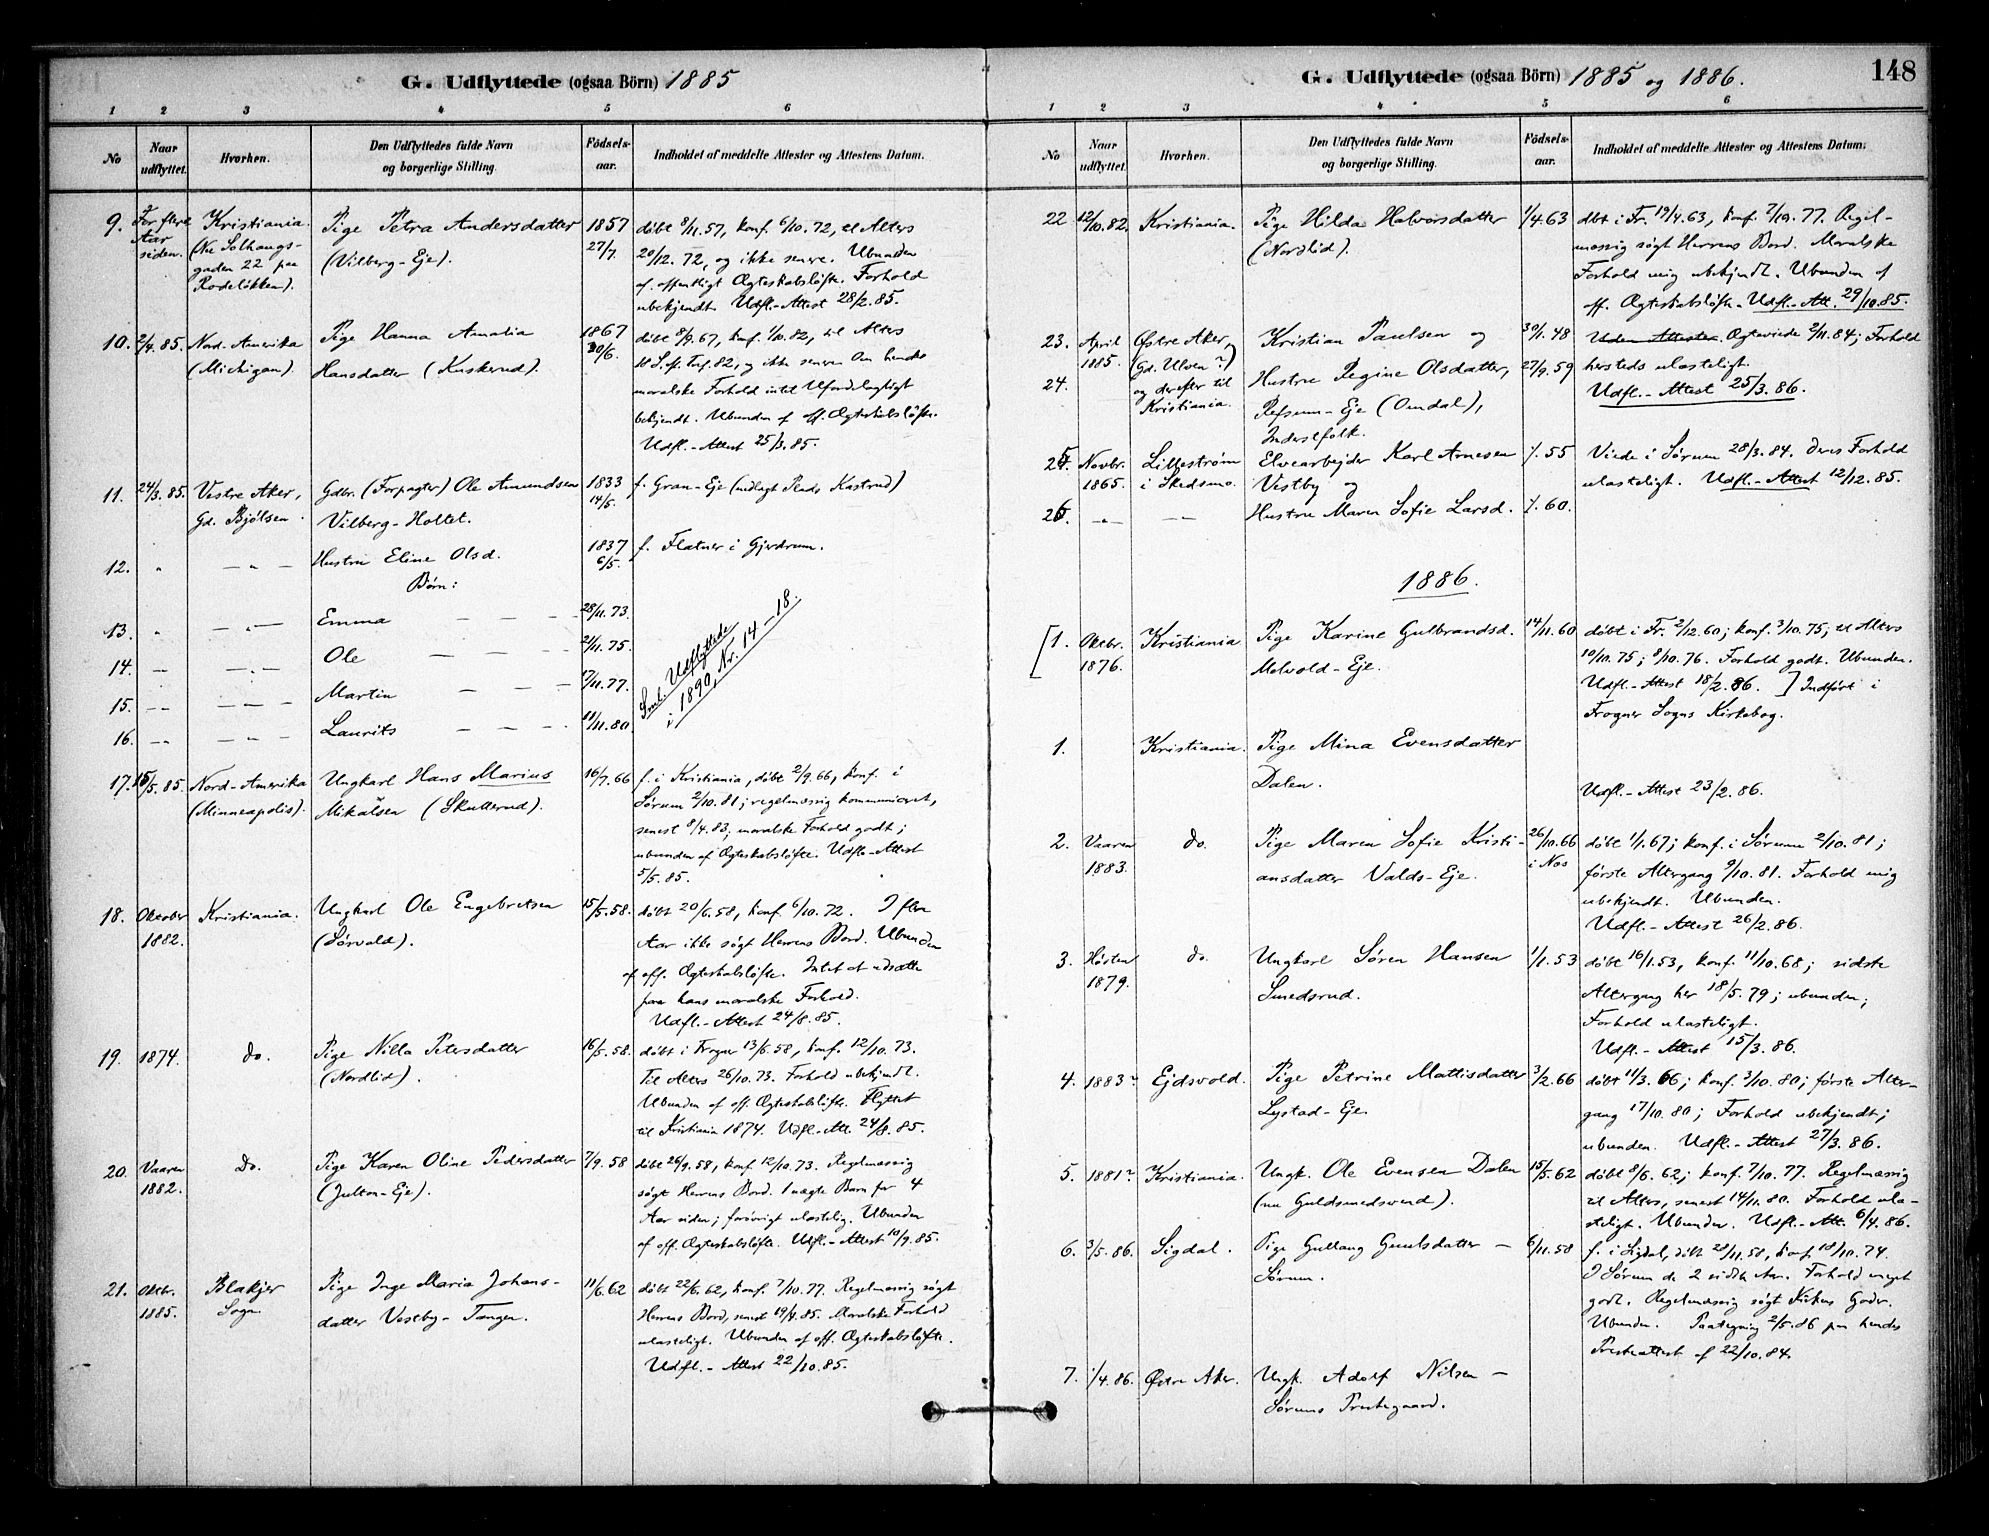 G. Udflyttede (ogsaa Börn) 1885
1 2 3 4 5 6
No
Naar udflyttet.
Hvorhen.
Den Udflyttedes fulde Navn og borgerlige Stilling.
Födselsaar.
Indholdet af meddelte Attester og Attestens Datum.
9. For flere Aar siden.
Kristiania.
gaden 22 paa
Rodeløkken).
Pige Petra Andersdatter
(Vilberg-Eje).
1857
27/7.
døbt 8/11.57, konf. 6/10.72, til Alters
20/12.72, og ikke senere. Ubunden
af offentligt Ægteskabsløfte. Forhold
ubekjendt. Udfl.-Attest 28/2.85.
10. 2/4.85. Nord-Amerika
(Michigan).
Pige Hanna Amalia
Hansdatter (Kuskerud).
1867
30/6.
døbt 8/9.67, konf. 1/10.82, til Alters
og ikke senere. Om hendes
moralske Forhold intet Ufordelagtigt
bekjendt. Ubunden af off. Ægteskabsløfte.
Udfl.-Attest 25/3.85.
11. 24/3.85. Vestre Aker,
Gd. Bjølsen.
Gdbr. (Forpagter) Ole Amundsen
Vilberg-Holtet.
1833
14/5.
f. Gran-Eje (nedlagt Plads Kastrud)
12. " — " —
Hustru Eline Olsd.
1837
6/5.
f. Flatner i Gjerdrum.
Børn:
13. " — " — Emma — — — 28/11.73.
14. — — " — Ole — — — 21/11.75.
15. — — — — Martin — — — 17/11.77.
16. — — — — Laurits — — — 11/11.80
Sml. Udflyttede
i 1890, Nr. 14-18.
17. 15/5.85. Nord-Amerika
(Minneapolis).
Ungkarl Hans Marius
Mikalsen (Skutterud).
16/7.66
f. i Kristiania, døbt 2/9.66, konf. i
Sørum 2/10.81; regelmæssig kommuniceret,
senest 8/4.83; moralske Forhold godt;
ubunden af Ægteskabsløfte. Udfl.-Attest
5/5.85.
18. Oktober
1882.
Kristiania.
Ungkarl Ole Engebretsen
(Sørvald).
15/5.58.
døbt 20/6.58, konf. 6/10.72. I flere
Aar ikke søgt Herrens Bord. Ubunden
af off. Ægteskabsløfte. Intet at udsætte
paa hans moralske Forhold.
Udfl.-Attest 24/8.85.
19. 1874. do.
Pige Nilla Petersdatter
(Nordlid).
16/5.58.
døbt i Frogner 13/6.58, konf. 12/10.73.
Til Alters 26/10.73. Forhold ubekjendt.
Ubunden af off. Ægteskabsløfte. Flyttet
til Kristiania 1874. Udfl.-Att. 24/8.85.
20. Vaaren
1882.
Do.
Pige Karen Oline Pedersdatter
(Julton-Eje).
7/9.58
døbt 26/9.58, konf. 12/10.73. Regelmæssig
søgt Herrens Bord. 1 uægte Barn for 4
Aar siden; forøvrigt ulastelig. Ubunden
af off. Ægteskabsløfte. Udfl.-Attest 10/9.85.
21. Oktbr.
1885.
Blakjer
Sogn
Pige Inge Maria Johans-
datter Vestby-Tangen.
11/6.62
døbt 22/6.62, konf. 7/10.77. Regelmæssig søgt
Herrens Bord, senest 19/4.85. Moralske Forhold
ulasteligt. Ubunden af off. Ægteskabsløfte.
Udfl.-Attest 22/10.85.
G. Udflyttede (ogsaa Börn) 1885 og 1886.
148
1 2 3 4 5 6
No
Naar udflyttet.
Hvorhen.
Den Udflyttedes fulde Navn og borgerlige Stilling.
Födselsaar.
Indholdet af meddelte Attester og Attestens Datum.
22 12/10.82. Kristiania.
Pige Hilda Halvorsdatter
(Nordlid).
1/4.63
dbt i Fr. 19/4.63, konf. 7/10.77. Regel-
mæssig søgt Herrens Bord. Moralske
Forhold mig ubekjendt. Ubunden af
off. Ægteskabsløfte. Udfl.-Att. 29/10.85.
23. April
1885.
24.
Østre Aker,
(Gd. Ulven?)
og derefter til
Kristiania.
Kristian Paulsen og
Hustru Regine Olsdatter,
Refsum-Eje (Omdal),
Inderstfolk.
30/1.48
27/9.59
Uden Attester. Ægteviede 2/11.84; Forhold
hersteds ulasteligt.
Udfl.-Attest 25/3.86.
25. Novbr.
1865.
Lillestrøm
i Skedsmo.
Elvearbejder Karl Arnesen
Vestby og
26. — " — — —
Hustru Maren Sofie Larsd.
55
60.
Viede i Sørum 28/3.84. deres Forhold
ulasteligt. Udfl.-Attest 12/12.85.
1886.
[1. Oktbr.
1876.
Kristiania
Pige Karine Gulbrandsd.
Molvold-Eje.
14/11.60
døbt i Fr. 2/12.60; konf. 3/10.75; til Alters
10/10.75; 8/10.76. Forhold godt. Ubunden.
Udfl.-Attest 18/2.86. ] Indført i
Frogner Sogns Kirkebog.
1. Kristiania.
Pige Mina Evensdatter
Dalen.
Udfl.-Attest 23/2.86.
2. Vaaren
1883.
do.
Pige Maren Sofie Kristi-
ansdatter Valds-Eje.
26/10.66
i Næs
døbt 1/1.67; konf. i Sørum 2/10.81;
første Altergang 9/10.81. Forhold mig
ubekjendt. Ubunden.
Udfl.-Attest 26/2.86.
3. Høsten
1879.
do.
Ungkarl Søren Hansen
Smedsrud.
1/1.53
døbt 16/1.53, konf. 11/10.68; sidste
Altergang her 18/5.79; ubunden;
Forhold ulasteligt.
Udfl.-Attest 15/3.86.
4. 1883? Ejdsvold.
Pige Petrine Mattisdatter
Lystad-Eje.
3/2.66
døbt 11/3.66; konf. 3/10.80; første Alter-
gang 17/10.80; Forhold ubekjendt;
ubunden. Udfl.-Attest 27/3.86.
5. 1881? Kristiania.
Ungk. Ole Evensen Dalen
(nu Guldsmedsvend).
15/5.62
døbt 8/6.62; konf. 7/10.77. Regelmæssig
til Alters, senest 14/11.80. Forhold ula-
steligt. Ubunden. Udfl.-Att. 6/4.86.
6. 3/5.86. Sigdal.
Pige Gullaug Gunlsdatter —
Sørum.
6/11.58
f. i Sigdal, døbt 28/11.58, konf. 18/10.74.
I Sørum de 2 sidste Aar. Forhold meget
godt. Regelmæssig søgt Kirkens Goder.
Ubunden. Paategning 2/5.86 paa hendes
Presteattest af 22/10.84.
7. 1/4.86. Østre Aker.
Ungk. Adolf Nilsen —
Sørums Prestegaard.